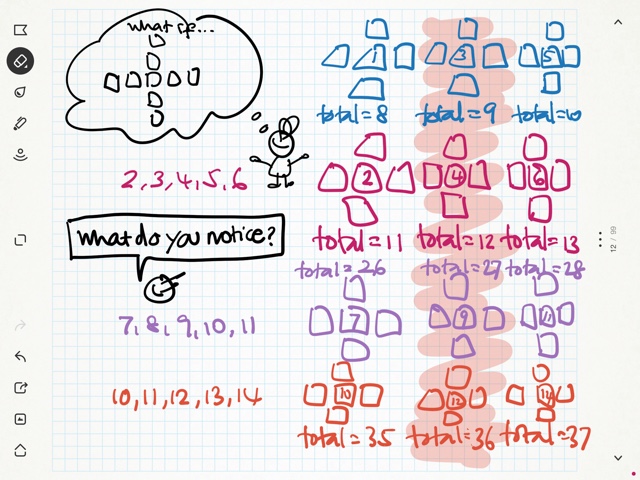 what if...
1
3
5
total=8
total=9
total=10
2,3,4,5,6
2
4
6
total=11
total=12
total=13
what do you notice?
total=26
total=27
total=28
7,8,9,10,11
7
9
11
10,11,12,13,14
10
12
14
total=35
total=36
total=37
12 / 99